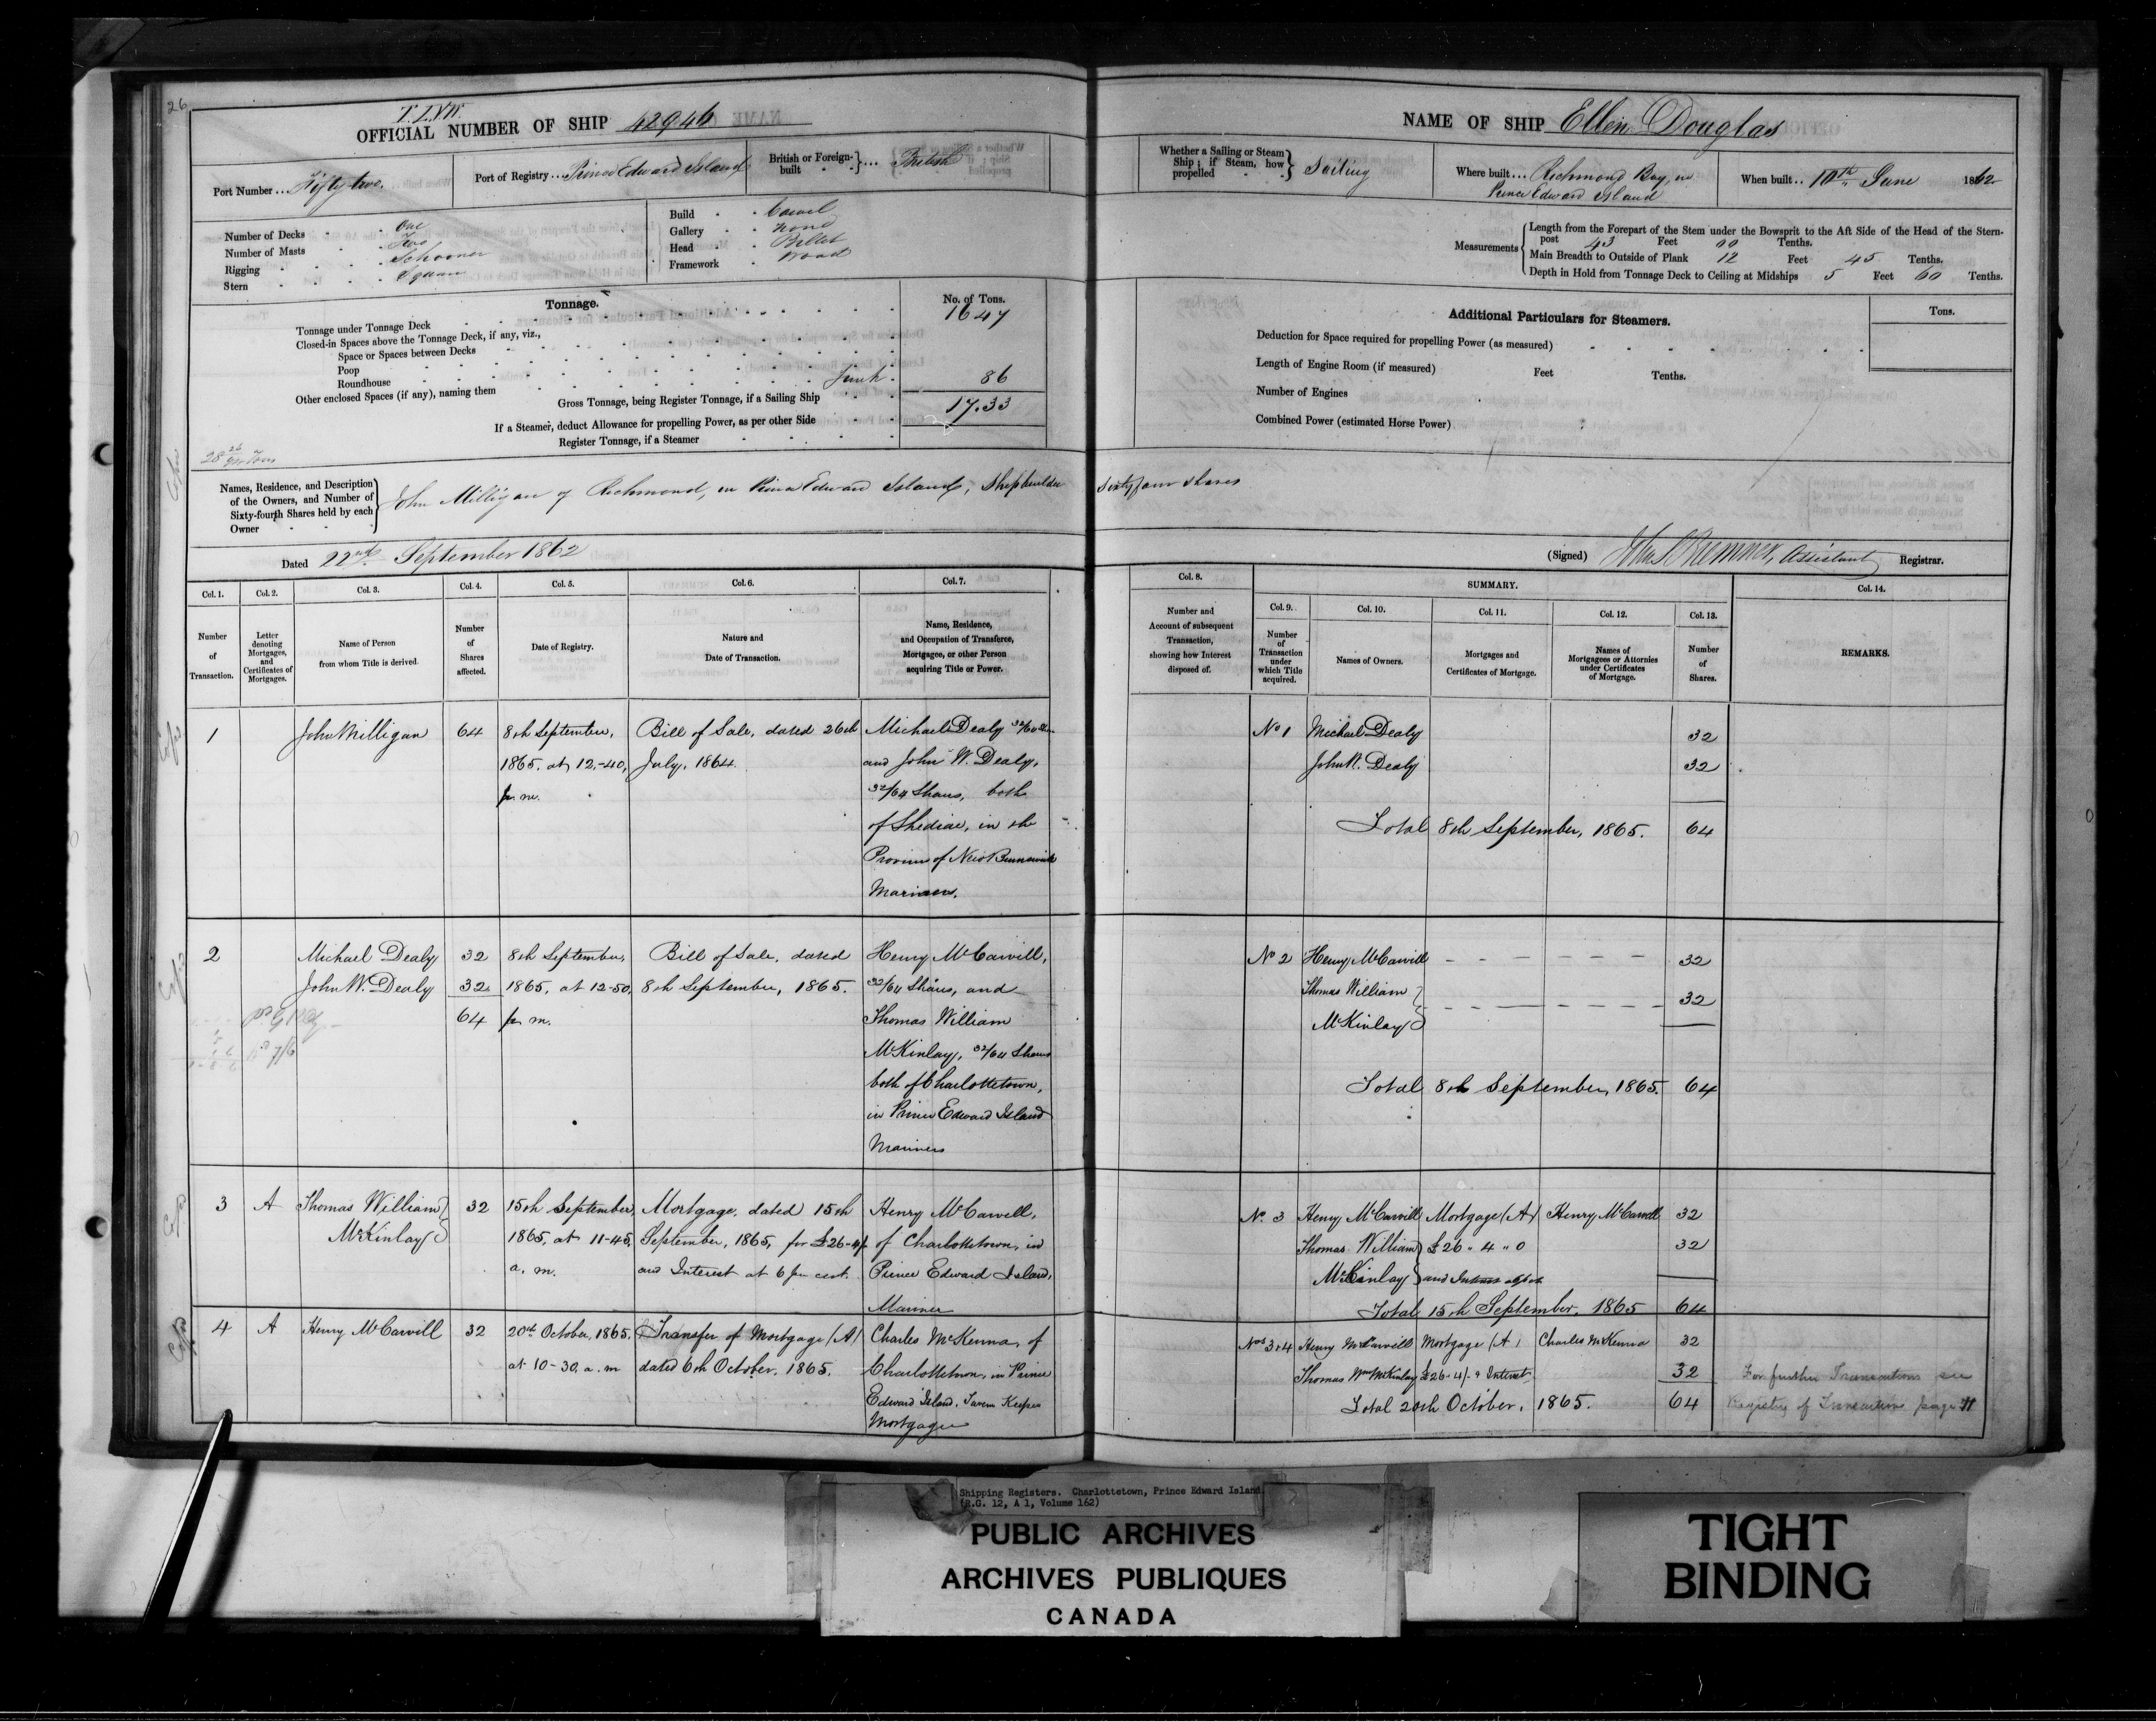 26
OFFICIAL NUMBER OF SHIP 42946
Port Number ... Fifty two.
Port of Registry ... Prince Edward Island
British or Foreign-built ... British
Number of Decks One
Number of Masts Two
Rigging Schooner
Stern Square
Build Carvel
Gallery None
Head Billet
Framework Wood
Tonnage.
No. of Tons.
Tonnage under Tonnage Deck 16 47
Closed-in Spaces above the Tonnage Deck, if any, viz.,
Space or Spaces between Decks
Poop
Roundhouse
Other enclosed Spaces (if any), naming them 86
Gross Tonnage, being Register Tonnage, if a Sailing Ship 17.33
If a Steamer, deduct Allowance for propelling Power, as per other Side
Register Tonnage, if a Steamer
Names, Residence, and Description of the Owners, and Number of Sixty-fourth Shares held by each Owner
John Milligan of Richmond, in Prince Edward Island, Shipbuilder
Dated 22nd September 1862
Col. 1. Col. 2. Col. 3. Col. 4. Col. 5. Col. 6. Col. 7.
Number of Transaction.
Letter denoting Mortgages, and Certificates of Mortgages.
Name of Person from whom Title is derived.
Number of Shares affected.
Date of Registry.
Nature and Date of Transaction.
Name, Residence, and Occupation of Transferee, Mortgagee, or other Person acquiring Title or Power.
1 John Milligan 64 8th September, Bill of Sale, dated 26th Michael Dealy
1865. at 12.-40, July, 1864. and John W. Dealy,
p. m. 32/64 Shares, both
of Shediac, in the
Province of New Brunswick
Mariners.
2 Michael Dealy 32 8th September, Bill of Sale, dated Henry McCarvill,
John W. Dealy 32 1865, at 12-50, 8th September, 1865. 32/64 Shares, and
64 p. m. Thomas William
McKinlay, 32/64 Shares
both of Charlottetown,
in Prince Edward Island
Mariners
3 A Thomas William 32 15th September, Mortgage, dated 15th Henry McCarvill,
McKinlay 1865, at 11-45, September, 1865, for £26-4/- of Charlottetown, in
a. m. and Interest at 6 per cent. Prince Edward Island,
Mariner
4 A Henry McCarvill 32 20th October, 1865. Transfer of Mortgage (A) Charles McKenna, of
at 10-30, a. m dated 6th October, 1865. Charlottetown, in Prince
Edward Island. Tavern Keeper
Mortgagee
NAME OF SHIP Ellen Douglas
Whether a Sailing or Steam Ship; if Steam, how propelled Sailing
Where built ... Richmond Bay, in
Prince Edward Island
When built .. 10th June 1862
Measurements
Length from the Forepart of the Stem under the Bowsprit to the Aft Side of the Head of the Stern-
post 43 Feet 00 Tenths.
Main Breadth to Outside of Plank 12 Feet 45 Tenths.
Depth in Hold from Tonnage Deck to Ceiling at Midships 5 Feet 60 Tenths.
Additional Particulars for Steamers.
Tons.
Deduction for Space required for propelling Power (as measured)
Length of Engine Room (if measured) Feet Tenths.
Number of Engines
Combined Power (estimated Horse Power)
Sixty four shares
(Signed) Assistant Registrar.
Col. 8.
Number and Account of subsequent Transaction, showing how Interest disposed of.
SUMMARY.
Col. 9. Col. 10. Col. 11. Col. 12. Col. 13. Col. 14.
Number of Transaction under which Title acquired.
Names of Owners.
Mortgages and Certificates of Mortgage.
Names of Mortgagees or Attornies under Certificates of Mortgage.
Number of Shares.
REMARKS.
No 1 Michael Dealy 32
John W. Dealy 32
Total 8th September, 1865. 64
No 2 Henry McCarvill 32
Thomas William 32
McKinlay
Total 8th September, 1865. 64
No. 3 Henry McCarvill Mortgage (A) Henry McCarvill 32
Thomas William £26 " 4 " 0 32
McKinlay and Interest
Total 15th September. 1865 64
Nos 3&4 Henry McCarvill Mortgage (A) Charles McKenna 32
Thomas Wm McKinlay £26-4/- & Interest 32
Total 20th October, 1865. 64
For further Transactions see
Registry of Transactions page
Shipping Registers. Charlottetown, Prince Edward Island.
(R.G. 12, A 1, Volume 162)
PUBLIC ARCHIVES
ARCHIVES PUBLIQUES
CANADA
TIGHT
BINDING